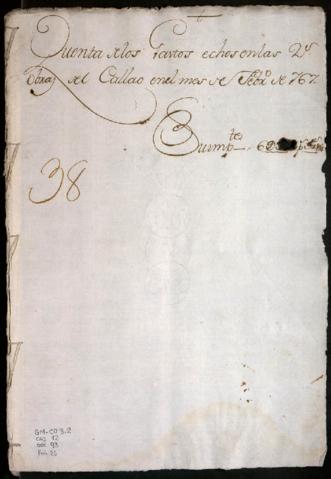 Quenta de los Gastos echos en las Rs
Obras del Callao en el mes de Febro de 767
Su impte 62
38
GM-CO 3.2
CAJ 12
DOC 93
Fol. 25